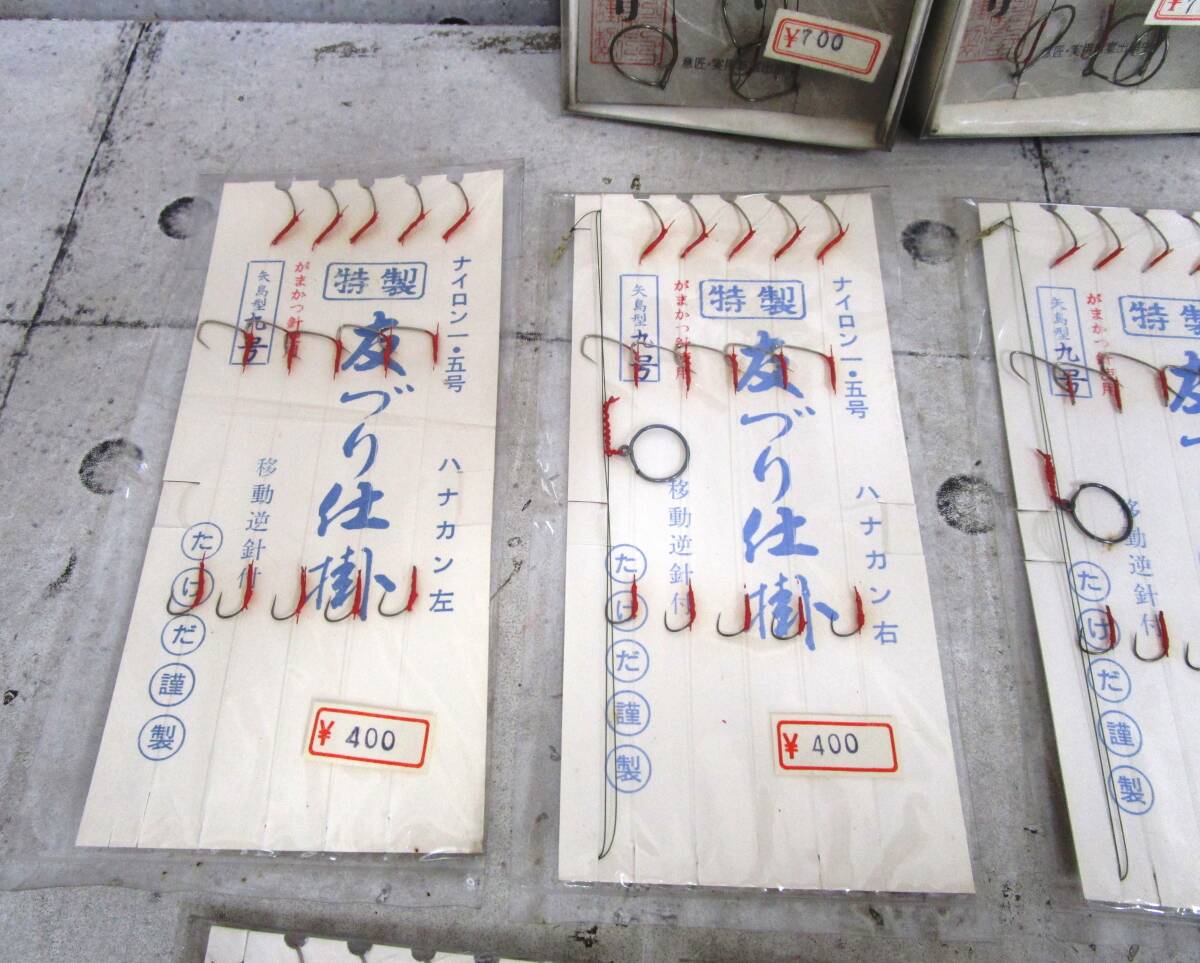 ¥700
意匠・実用
特製
友づり仕掛
ナイロン一・五号
ハナカン左
がまかつ針
矢島型九号
移動逆針付
たけだ謹製
¥400
特製
友づり仕掛
ナイロン一・五号
ハナカン右
がまかつ針使用
矢島型九号
移動逆針付
たけだ謹製
¥400
特製
友
がまかつ針使用
矢島型九号
移動逆針付
たけだ謹製